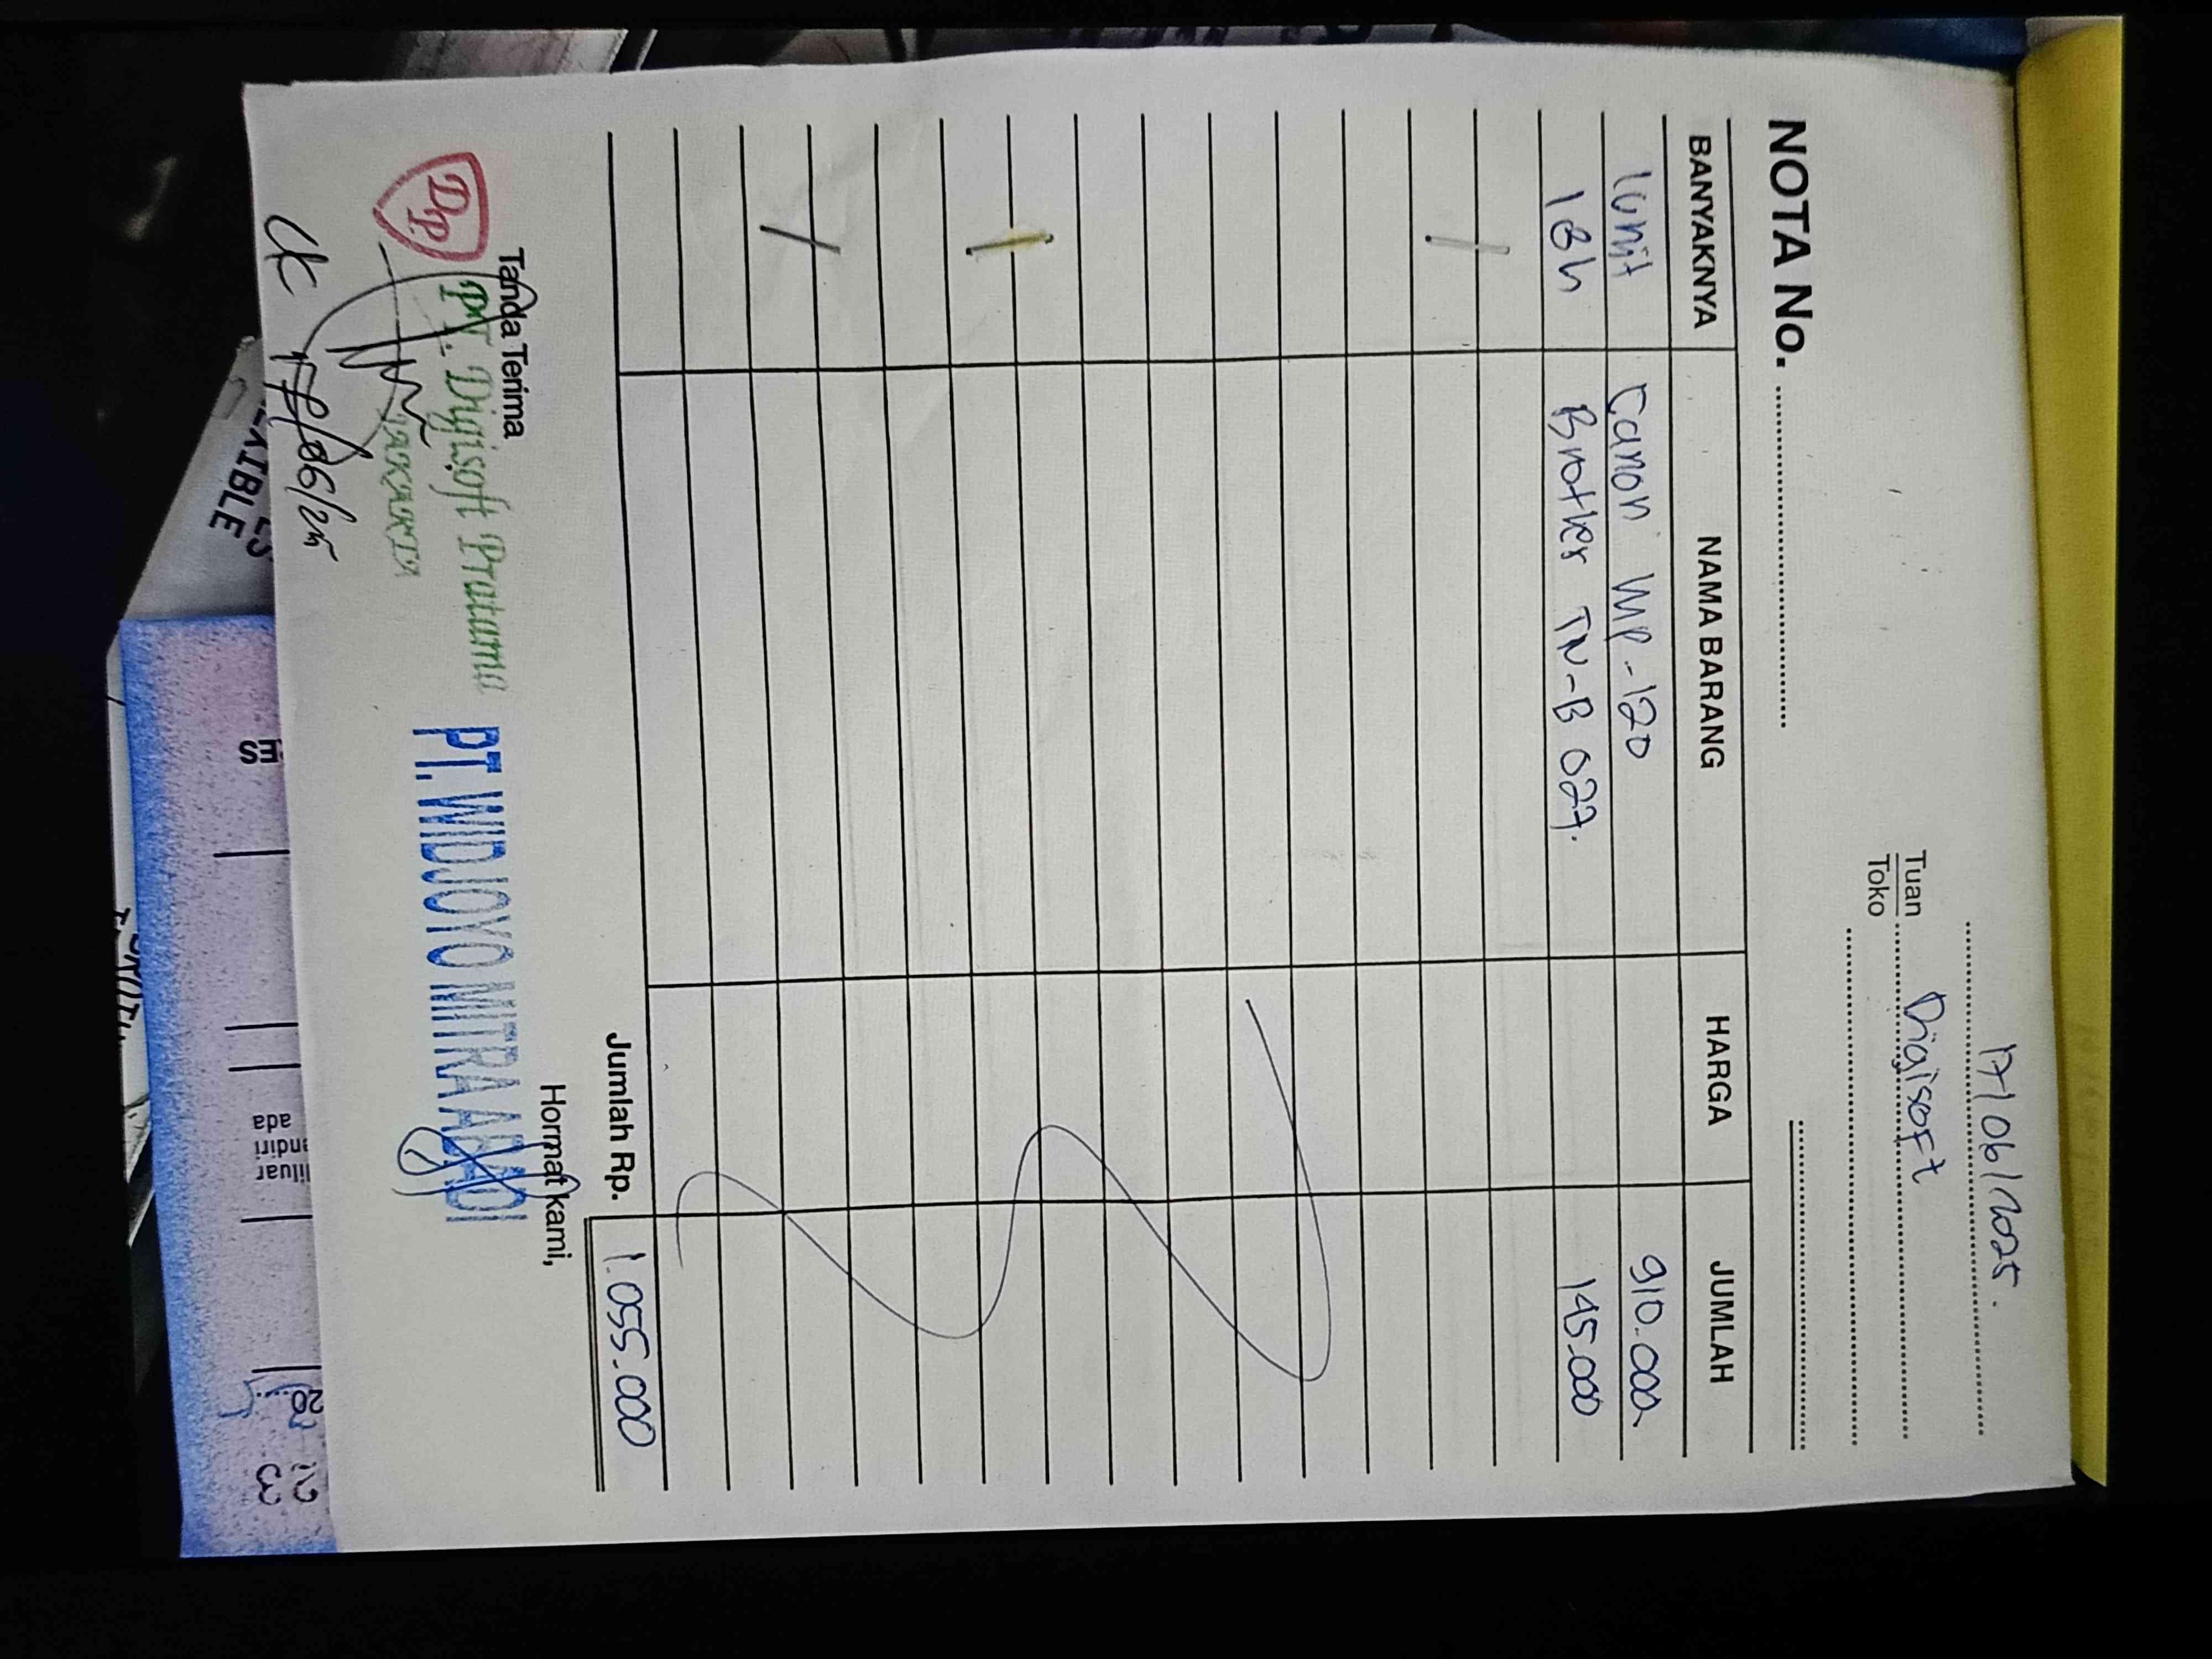 17/06/2025.
Tuan Digisoft
Toko
NOTA No.
BANYAKNYA NAMA BARANG HARGA JUMLAH
1 unit Canon MP-120 910.000
1 Bh Brother TN-B 027. 145.000
Jumlah Rp. 1.055.000
Tanda Terima Hormat kami,
DP PT. Digisoft Pratama PT. WIDJOYO MITRA ABADI
JAKARTA
17/06/25
XIBLE
ES
diluar
andiri
ada
20
23